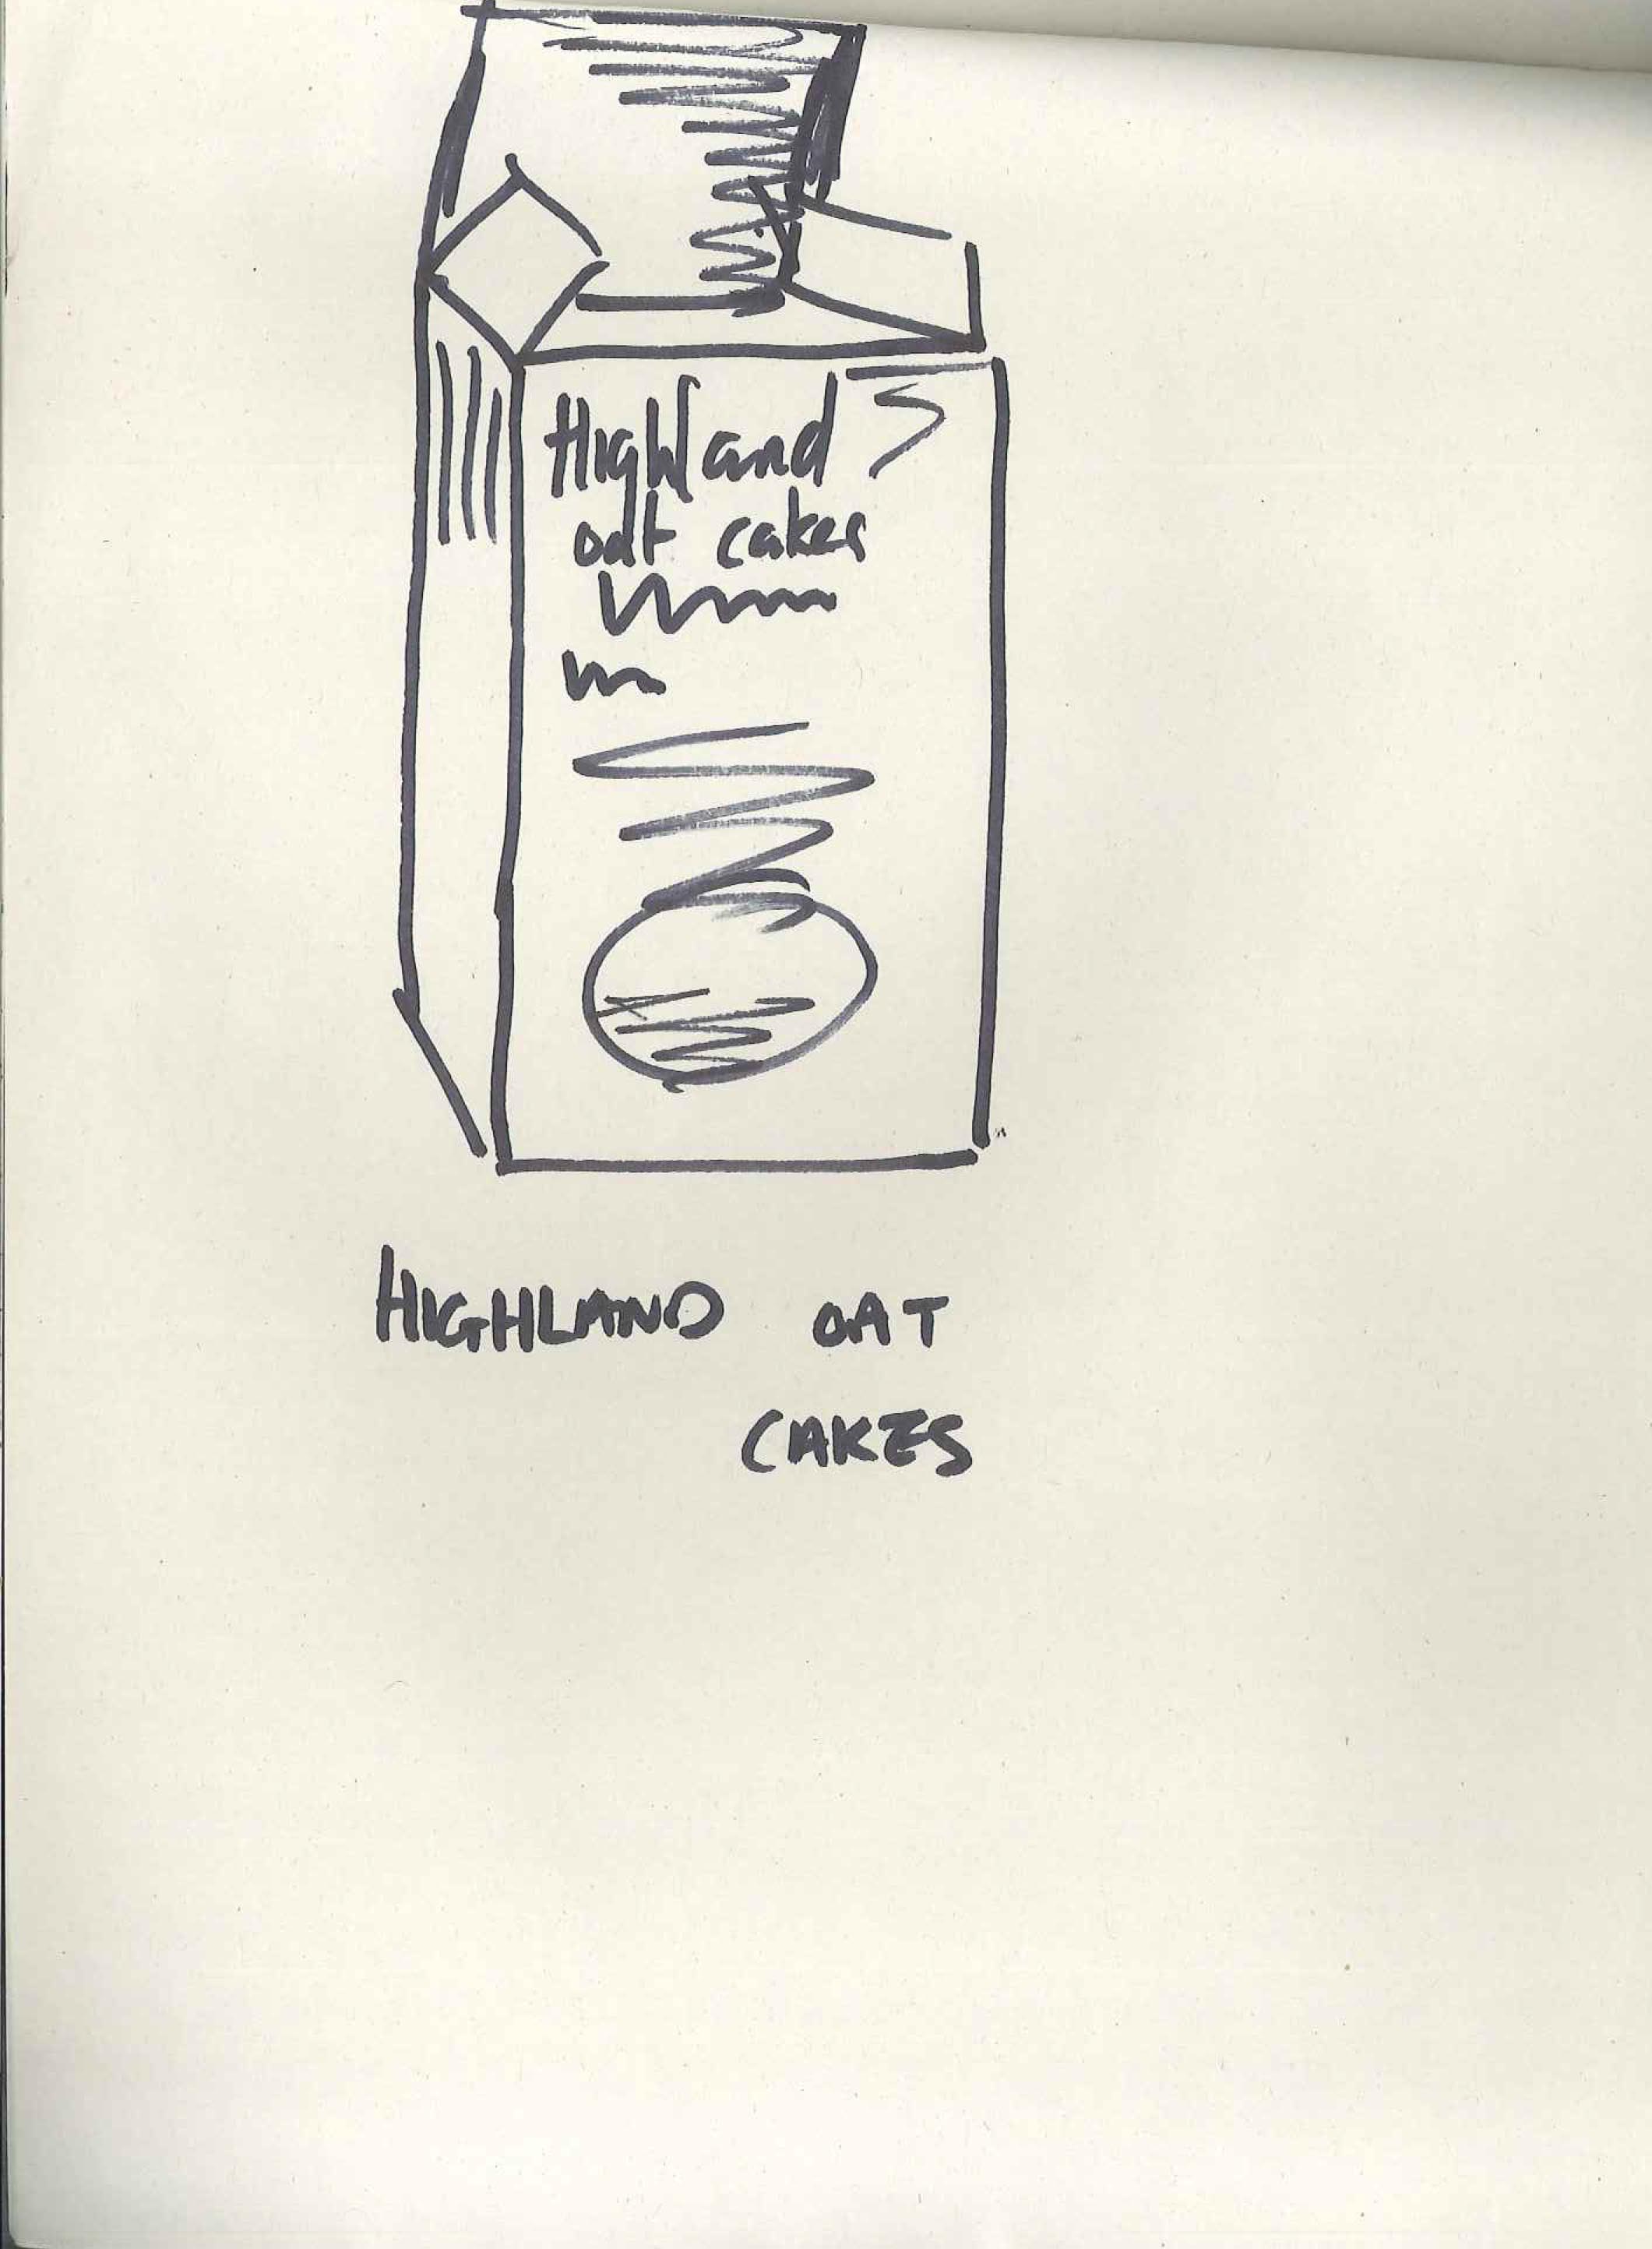 Highland
oat cakes
HIGHLAND OAT
CAKES